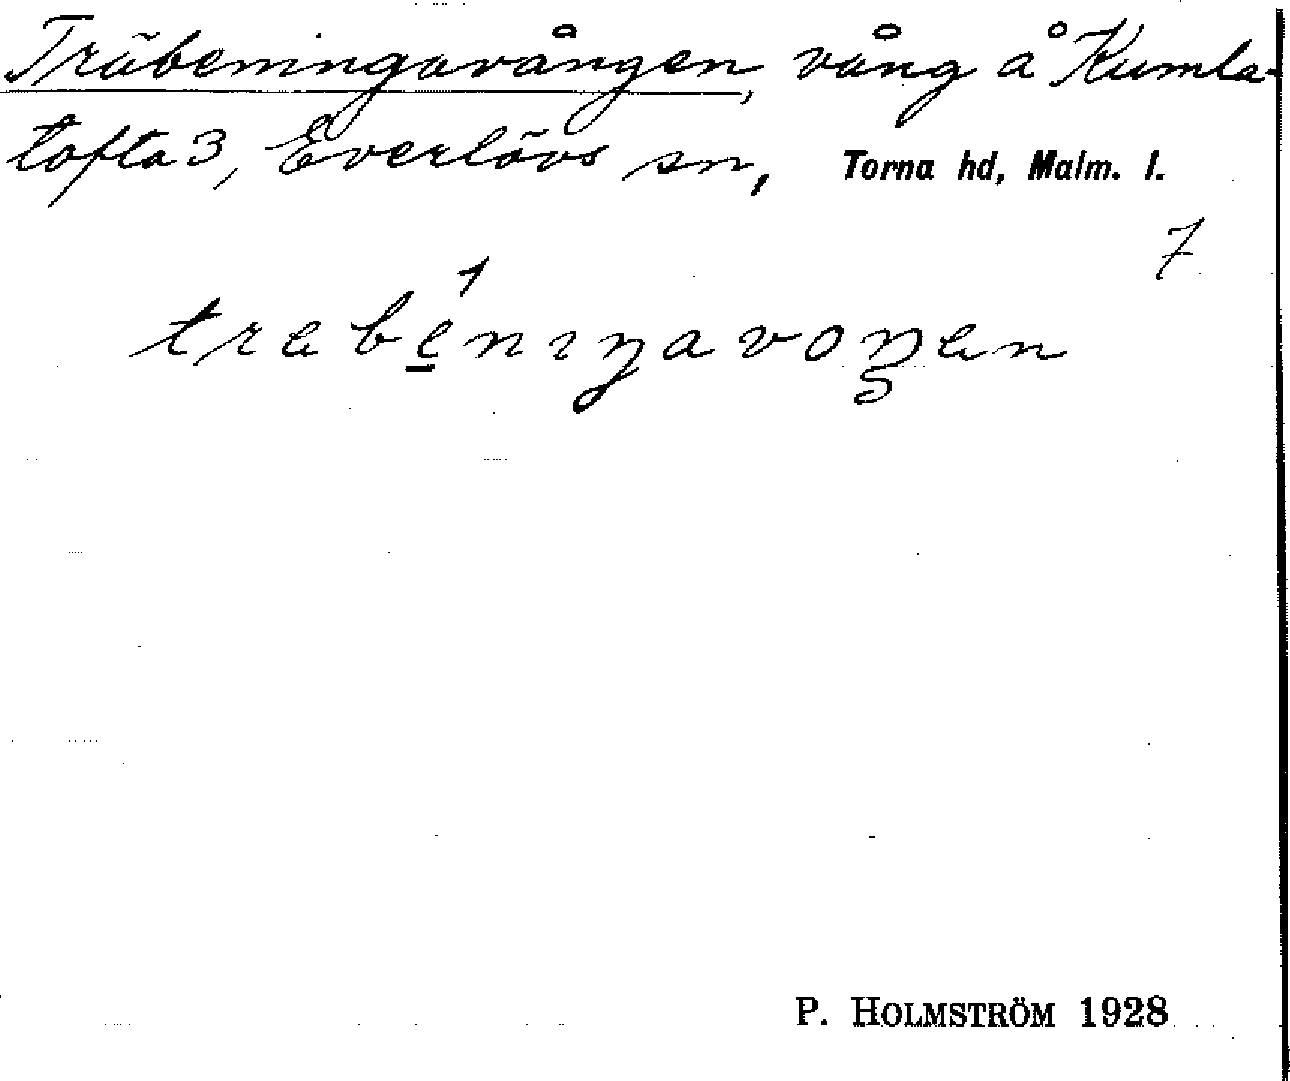 Träbeningavången, vång å Kumla-
tofta 3, Everlövs sn, Torna hd, Malm. l.
7
trabé̠nıŋavoŋ̨an
P. HOLMSTRÖM 1928